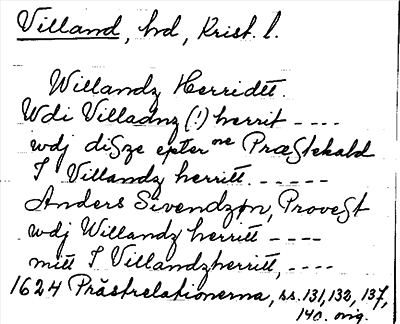 Villand, hd, Krist. l.
Willandz Herridtt.
Wdi Villadnz (!) herrit ----
wdj disze epter ne Præstekald
I Villandz herritt. -----
Anders Sivendzøn, Provest
wdj Willandz herritt ----
mitt I Villandzherritt, ----
1624 Prästrelationerna, ss. 131, 132, 137,
140. orig.